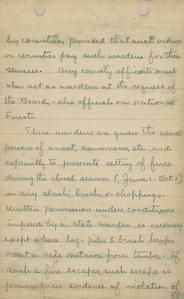 by counties, provided that such counties
or counties pay such wardens for their
services. Any county officials must
also act as wardens at the request of
the Board, - also officials on National
Forests.
These wardens are given the usual
powers of arrest, summons, etc. and
especially to prosecute setting of fires
during the closed season (June 1 - Oct. 1)
in any slash, brush or choppings.
Written permission under conditions
imposed by a state warden is necessary
except where log piles & brush heaps
are at a safe distance from timber. If
such a fire escapes, such escape is
prima facie evidence of violation of